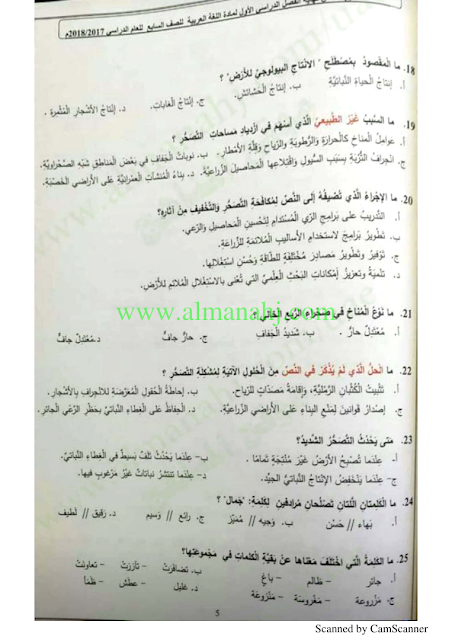 نهاية الفصل الدراسي الأول لمادة اللغة العربية للصف السابع للعام الدراسي 2018/2017م
18. ما المقصود بمصطلح " الانتاج البيولوجيّ للأرض " ؟
أ. إنتاج الحياة النباتيّة ب. إنتاج الحشائش. ج. إنتاج الغابات. د. إنتاج الأشجار المثمرة .
19. ما السبب غير الطبيعيّ الّذي أسهم في ازدياد مساحات التّصحّر ؟
أ. عوامل المناخ كالحرارة والرّطوبة والرّياح وقلّة الأمطار. ب. نوبات الجفاف في بعض المناطق شبه الصّحراويّة
ج. انجراف التّربة بسبب السّيول واقتلاعها المحاصيل الزّراعيّة. د. بناء المنشآت العمرانيّة على الأراضي الخصبة.
20. ما الإجراء الّذي تضيفه إلى النّصّ لمكافحة التّصحّر والتّخفيف من آثاره؟
أ. التّدريب على برامج الرّي المستدام لتحسين المحاصيل والرّعي.
ب. تطوير برامج لاستخدام الأساليب الملائمة للزّراعة.
ج. توفير وتطوير مصادر مختلفة للطّاقة وحسن استغلالها.
د. تنمية وتعزيز إمكانات البحث العلميّ التي تُعنى بالاستغلال الملائم للأرض.
www.almanahj.com
21. ما نوع المناخ في صحراء الرّبع الخالي؟
أ. معتدل حارّ . ب. شديد الجفاف ج. حارّ جافّ د.معتدل جافّ
22. ما الحلّ الّذي لم يُذكر في النّصّ من الحلول الآتية لمشكلة التّصحّر ؟
أ. تثبيت الكثبان الرّمليّة، وإقامة مصدّات للرّياح. ب. إحاطة الحقول المعرّضة للانجراف بالأشجار.
ج. إصدار قوانين لمنع البناء على الأراضي الزّراعيّة. د. الحفاظ على الغطاء النّباتي بحظر الرّعي الجائر.
23. متى يحدث التّصحّر الشّديد؟
أ- عندما تصبح الأرض غير منتجة تمامًا . ب- عندما يحدث تلف بسيط في الغطاء النّباتي.
ج- عندما ينخفض الإنتاج النّباتيّ الجيّد. د- عندما تنتشر نباتات غير مرغوب فيها.
24. ما الكلمتان اللّتان تصلحان مرادفين لكلمة: "جمال" ؟
أ. بهاء // حسن ب. وجيه // مميّز ج. رائع // وسيم د. رقيق // لطيف
25. ما الكلمة الّتي اختلف معناها عن بقيّة الكلمات في مجموعتها؟
أ. جائر – ظالم – باغٍ ب. تضافرت – تآزرت – تعاونت
ج. مزروعة – مغروسة – منزوعة د. غليل – عطش – ظمأ
5
Scanned by CamScanner